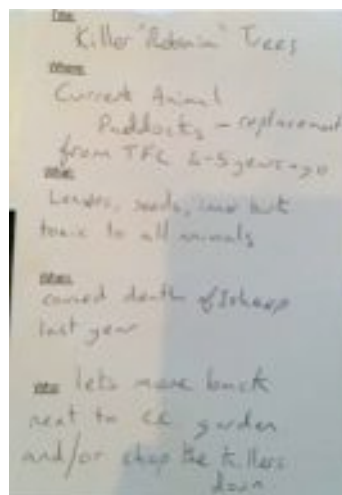 Title
Killer "Robinia" Trees
Where
Current Animal
Paddocks - replacement
from TFC 4-5 years ago
What
Leaves, seeds, inner bark
toxic to all animals
When
caused death of 1 sheep
last year
Who lets move back
next to CC garden
and/or chop the killers
down